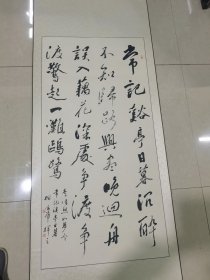 常記谿亭日暮沉醉
不知歸路興盡晚迴舟
誤入藕花深處爭渡爭
渡驚起一灘鷗鷺
李清照如夢令